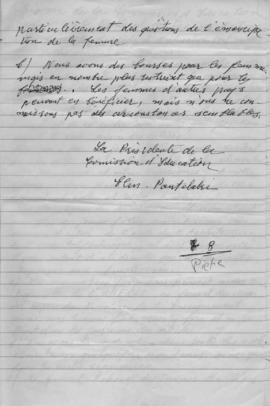 particulièrement des questions de l'émancipa-
tion de la femme
b) Nous avons des bourses pour les fem
mais en nombre plus restreint que pour les
. Les femmes d'autres pays
peuvent en bénéficier, mais nous ne co-
nnaissons pas des circonstances semblables.
La Présidente de la
Comission d'Education
8